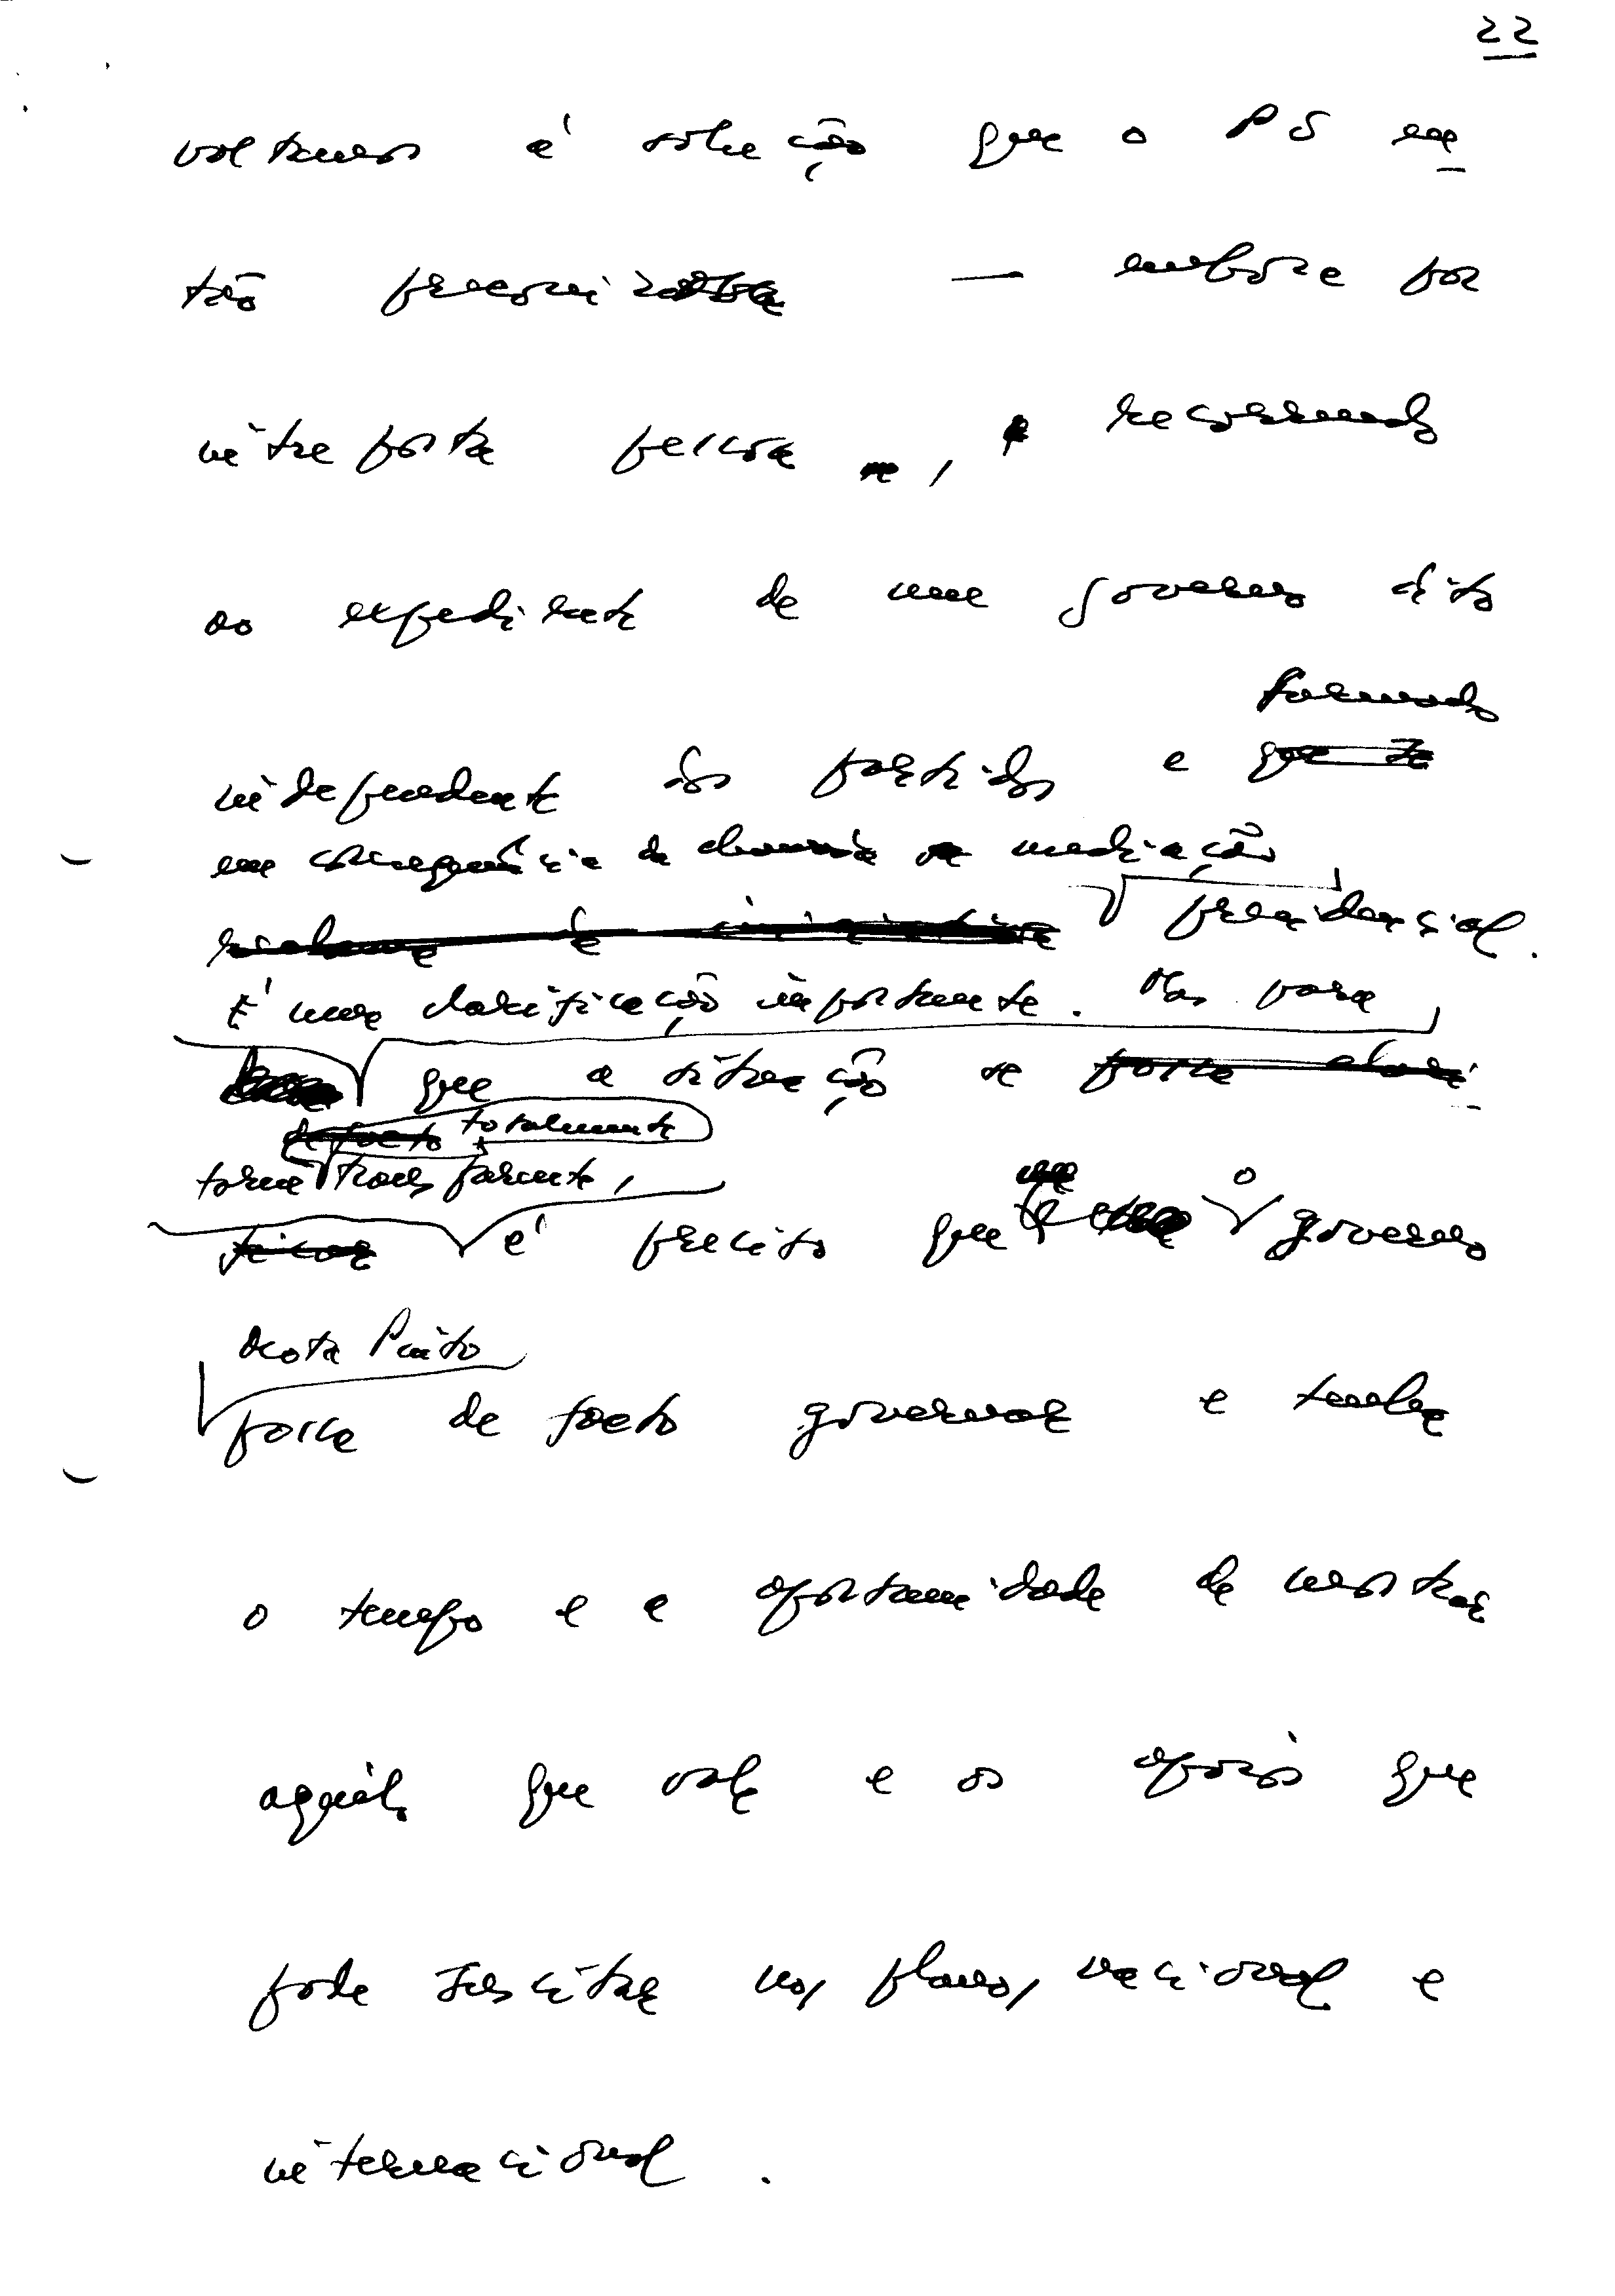 22
voltamos à solução que o PS en
tão preconizava — embora por
interposta pessoa, recorrendo
ao expediente de um governo dito
formado
independente dos partidos e que se
em consequência da chamada mediação
presidencial.
É uma clarificação importante. Mas para
que a situação se possa
de facto totalmente
torne transparente,
ficar é preciso que o governo
Mota Pinto
possa de facto governar e tenha
o tempo e a oportunidade de mostrar
aquilo que vale e os apoios que
pode suscitar nos planos nacional e
internacional.